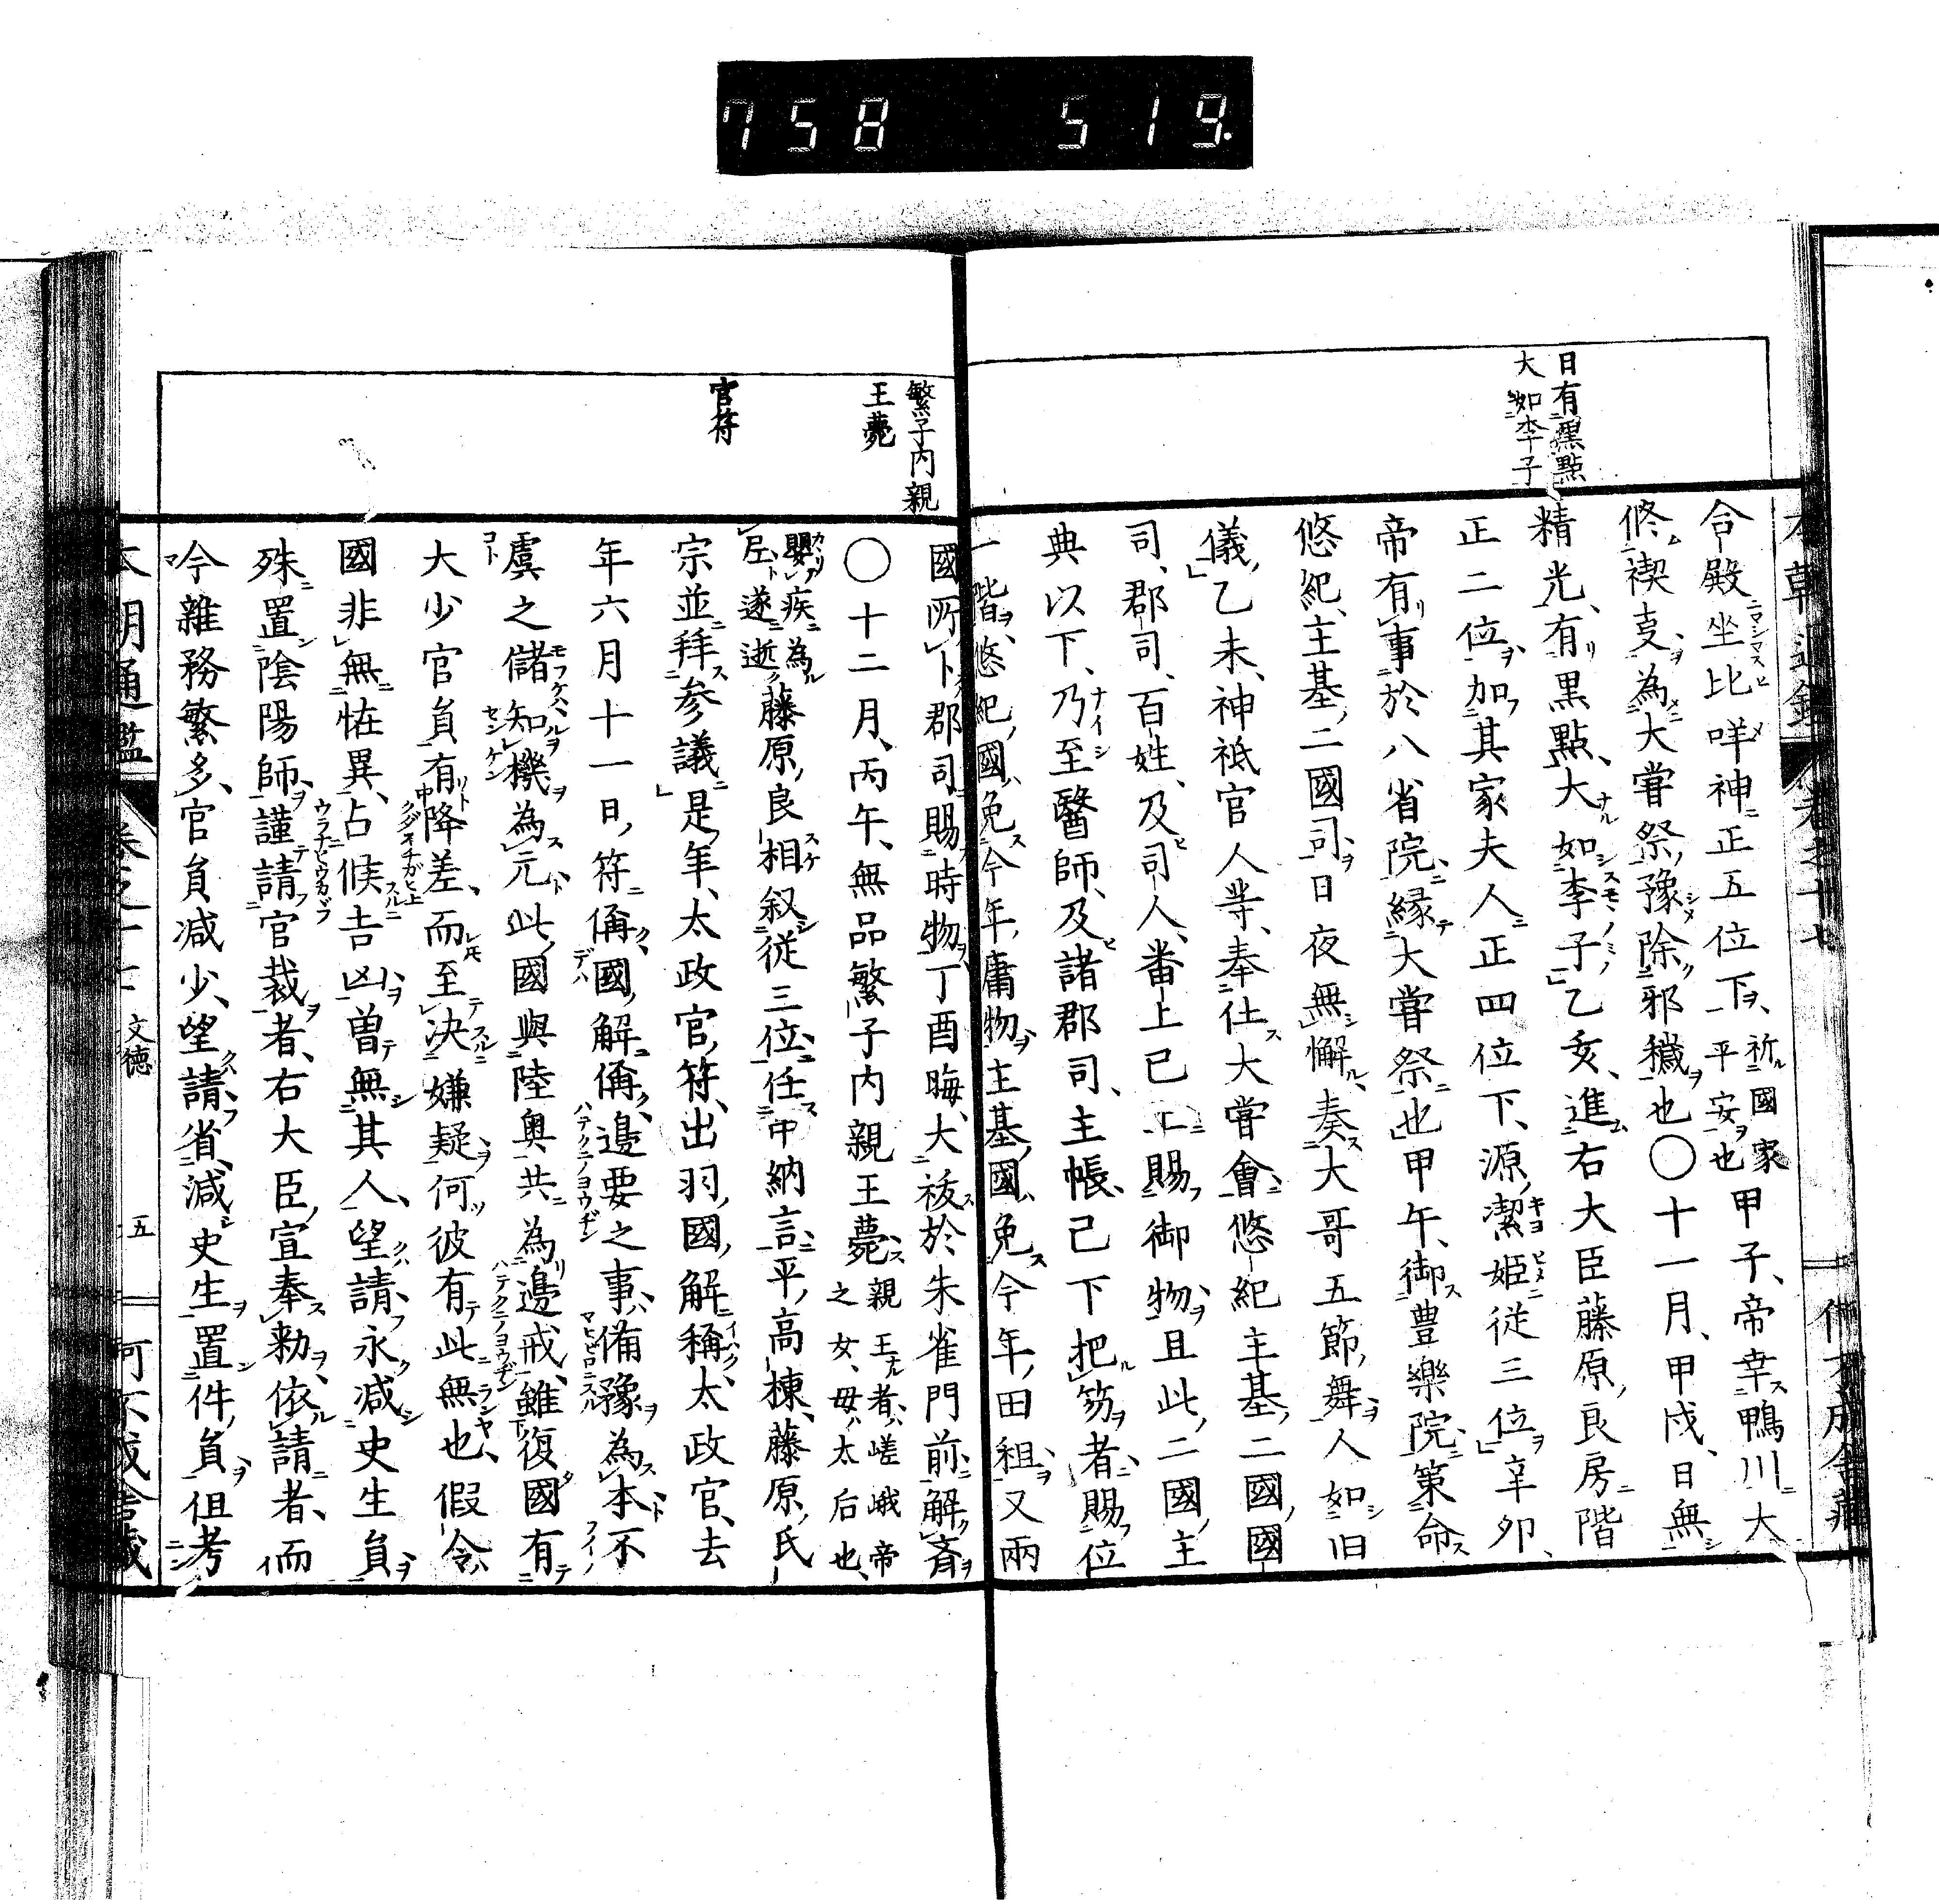 758 519.
日有黒點
大如李子
合殿坐比咩神正五位下祈國家平安也甲子帝幸鴨川大
修禊㕝為大嘗祭豫除邪穢也〇十一月甲戌日無
精光有黒點大如李子乙亥進右大臣藤原良房階
正二位加其家夫人正四位下源潔姫従三位辛夘
帝有事於八省院縁大嘗祭也甲午御豊樂院策命
悠紀主基二國司日夜無懈奏大哥五節舞人如旧
儀乙未神祇官人等奉仕大嘗會悠紀主基二國國
司郡司百姓及司人番上已上賜御物且此二國主
典以下乃至醫師及諸郡司主帳己下把笏者賜位
一階悠紀國免今年庸物主基國免今年田租又兩
繁子内親
王薨
官符
國所卜郡司賜時物丁酉晦大祓於朱雀門前解斉
〇十二月丙午無品繁子内親王薨親王者嵯峨帝之女母太后也
嬰疾為尼遂逝藤原良相叙従三位任中納言平高棟藤原氏
宗並拜参議是年太政官符出羽國解稱太政官去
年六月十一日符偁國解偁邊要之事備豫為本不
虞之儲知機為元此國與陸奥共為邊戒雖復國有
大少官負有降差而至决嫌疑何彼有此無也假令
國非無恠異占候吉凶曽無其人望請永减史生負
殊置陰陽師謹請官裁者右大臣宣奉勅依請者而
今雜務繁多官負减少望請省減史生置件負但考
本朝通鑑 卷之十七 文徳 五